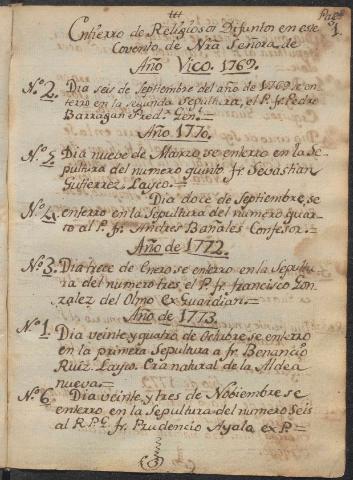 Pag.ª 1.
Entierro de Religiosos Difuntos en este
Covento de Nra Señora de
Año Vico. 1769.
N.º 2. Dia seis de Septiembre del año de 1769. se en
terro en la segunda Sepultura, el P. fr. Pedro
Barragan Pred.r Gen.l =
Año. 1770.
N.º 5. Dia nueve de Marzo se enterro en la Se-
pultura del numero quinto fr. Sevastian
Gutierrez. Layco. =
Dia doce de Septiembre, se
N.º 4. enterro en la Sepultura del numero quar-
to al P. fr. Andres Bañales Confesor. =
Año de 1772.
N.º 3. Dia trece de Enero se enterro en la Sepultu-
ra del numero tres, el P. fr. francisco Gon-
zalez del Olmo Ex Guardian. =
Año de 1773.
N.º 1. Dia veinte y quatro de Octubre se enterro
en la primera Sepultura a fr. Benancio
Ruiz. Layco. Era natural de la Aldea
nueva =
N.º 6. Dia veinte y tres de Nobiembre se
enterro en la Sepultura del numero Seis
al R. P. fr. Prudencio Ayala ex P. =